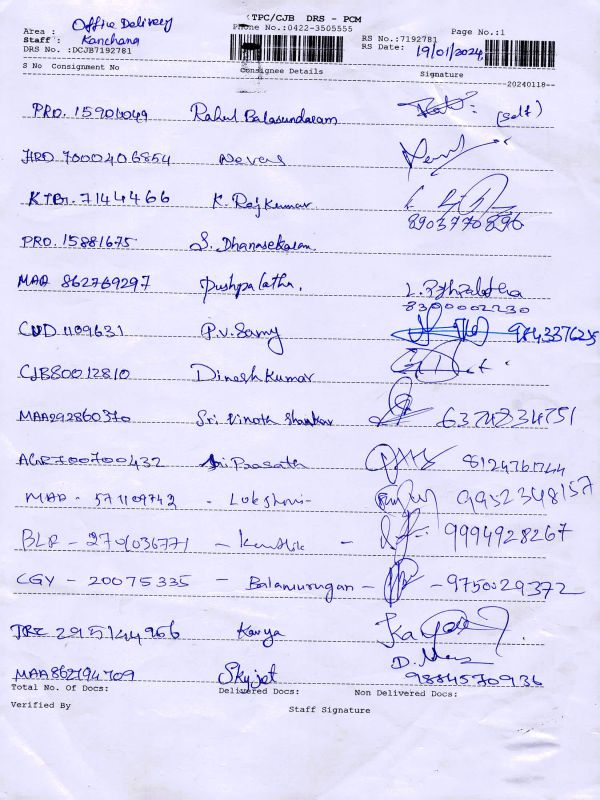 TPC/CJB DRS - PCM
Area : Office Delivery Phone No.:0422-3505555 Page No.:1
Staff : Kanchana RS No.:7192781
DRS No. :DCJB7192781 RS Date: 19/01/2024
S No Consignment No Consignee Details Signature
20240118
PRO. 15906049 Rahul Balasundaram (self)
7000406854
7144466 K. Rajkumar
8903770896
PRO. 15881675 S. Dhanasekaran
MAQ 862769297 Pushpalatha. L. Pushpalatha
8300002230
1109631 P.V. Samy
CJB80012810 Dinesh Kumar
MAA292860370 Sri Vinoth Shankar 6374834751
700700432 Sri Prasath
MAA - 571109742 - Lakshmi - 9952348157
BLR - - Kaushik - 9994928267
CGY - 20075335 - Balamurugan - - 9750029372
Kavya
Skyjet 9884570936
Total No. Of Docs: Delivered Docs: Non Delivered Docs:
Verified By Staff Signature